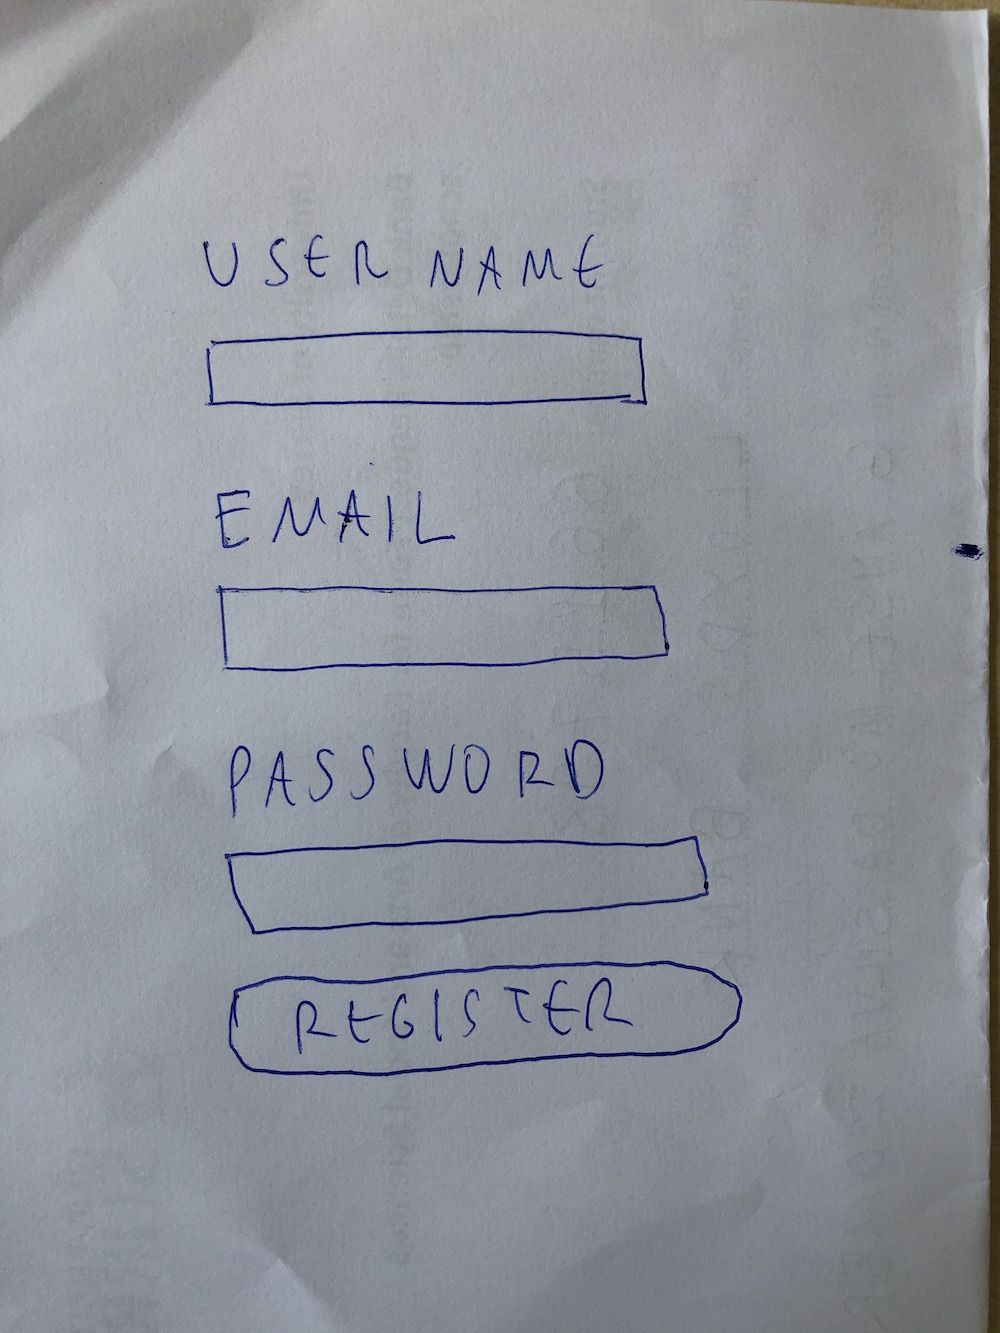 USER NAME
EMAIL
PASSWORD
REGISTER